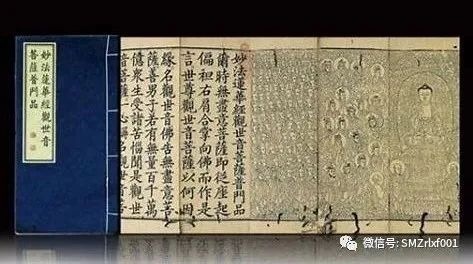 妙法蓮華經觀世音
菩薩普門品
妙法蓮華經觀世音菩薩普門品
爾時無盡意菩薩即從座起
偏袒右肩合掌向佛而作是
言世尊觀世音菩薩以何因
緣名觀世音佛告無盡意菩
薩善男子若有無量百千萬
億衆生受諸苦惱聞是觀世
音菩薩一心稱名觀世音
微信号: SMZrlxf001